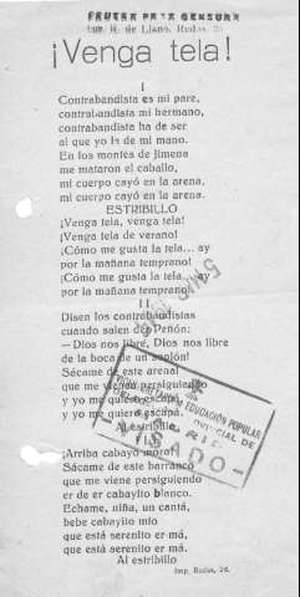 PRUEBA PARA CENSURA
Imp. R. de Llano, Rodas,
¡Venga tela!
I
Contrabandista es mi pare,
contrabandista mi hermano,
contrabandista ha de ser
al que yo le de mi mano.
En los montes de Jimena
me mataron el caballo,
mi cuerpo cayó en la arena,
mi cuerpo cayó en la arena.
ESTRIBILLO
¡Venga tela, venga tela!
¡Venga tela de verano!
¡Cómo me gusta la tela... ay
por la mañana temprano!
¡Cómo me gusta la tela... ay
por la mañana temprano!
II
Disen los contrabandistas
cuando salen del Peñón:
—Dios nos libre, Dios nos libre
de la boca de un soplón!
Sácame de este arenal
que me vienen persiguiendo
y yo me quiero escapá.
y yo me quiero escapá.
Al estribillo
¡Arriba cabayo moro!
Sácame de este barranco
que me viene persiguiendo
er de er cabayito blanco.
Echame, niña, un cantá,
bebe cabayito mío
que está serenito er má,
que está serenito er má.
Al estribillo
Imp. Rodas, 26.
EDUCACIÓN POPULAR
PROVINCIAL DE
MADRID
-VISADO-